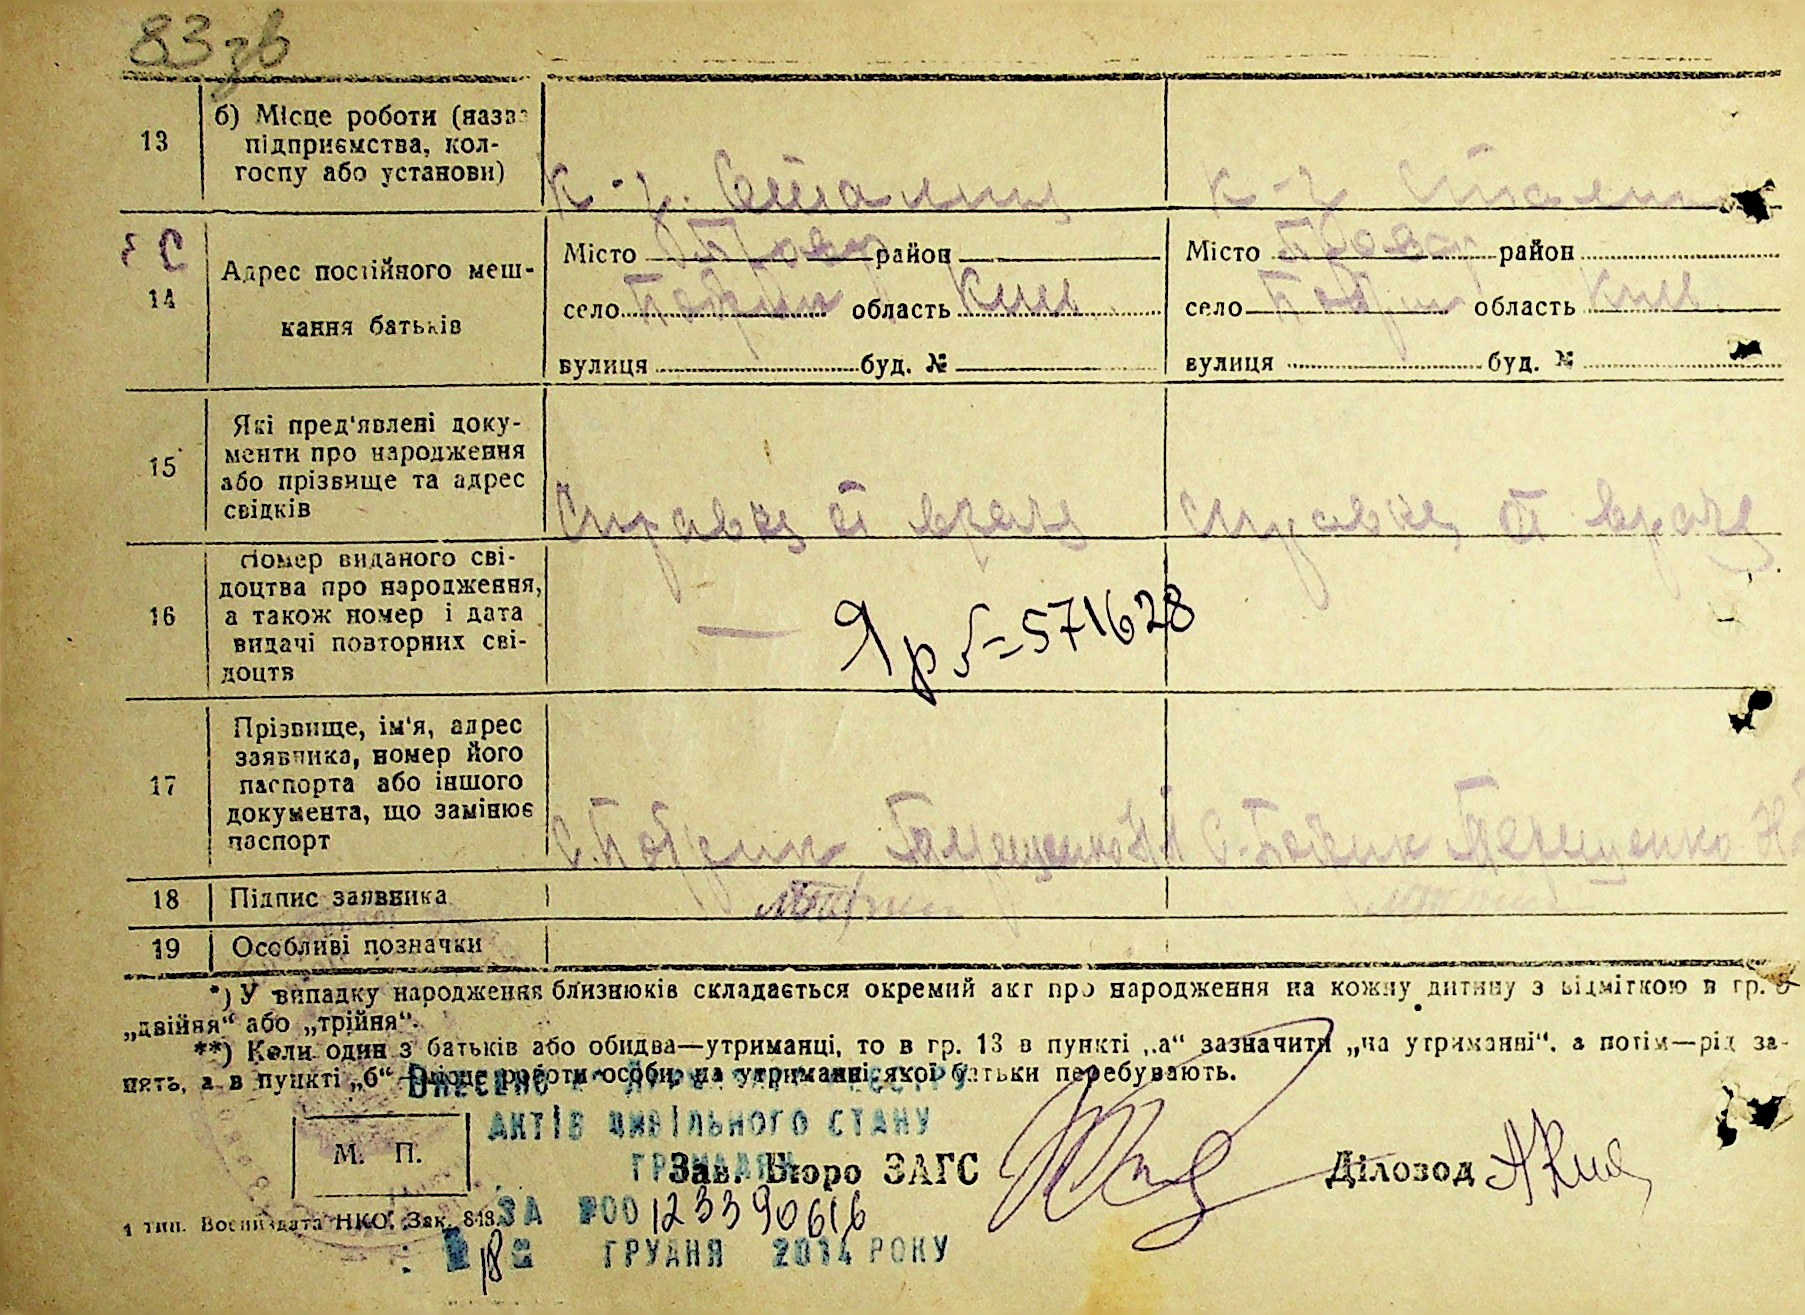 83 зв
13
б) Місце роботи (назва
підприємства, кол-
госпу або установи)
к-г. Сталина
к-г Сталина
14
Адрес постійного меш-
кання батьків
Місто район
село область Киев
вулиця буд. №
Місто район
село область Киев
вулиця буд. №
15
Які пред'явлені доку-
менти про народження
або прізвище та адрес
свідків
Справка от врача
Справка от врача
16
Номер виданого сві-
доцтва про народження,
а також номер і дата
видачі повторних сві-
доцтв
— 571628
17
Прізвище, ім'я, адрес
заявника, номер його
паспорта або іншого
документа, що замінює
паспорт
С.
С. Терещенко
18
Підпис заявника
19
Особливі позначки
*) У випадку народження близнюків складається окремий акт про народження на кожну дитину з відміткою в гр.
„двійня“ або „трійня“.
**) Коли один з батьків або обидва—утриманці, то в гр. 13 в пункті „а“ зазначити „на утриманні“, а потім—рід за-
нять, а в пункті „б“—місце роботи особи, на утриманні якої батьки перебувають.
ВНЕСЕНО РЕЄСТРУ
АКТІВ ЦИВІЛЬНОГО СТАНУ
ГРОМАДЯН
М. П.
Зав. Бюро ЗАГС
Діловод
ЗА №00123390616
18 ГРУДНЯ 2014 РОКУ
1 тип. Воениздата НКО. Зак. 848.